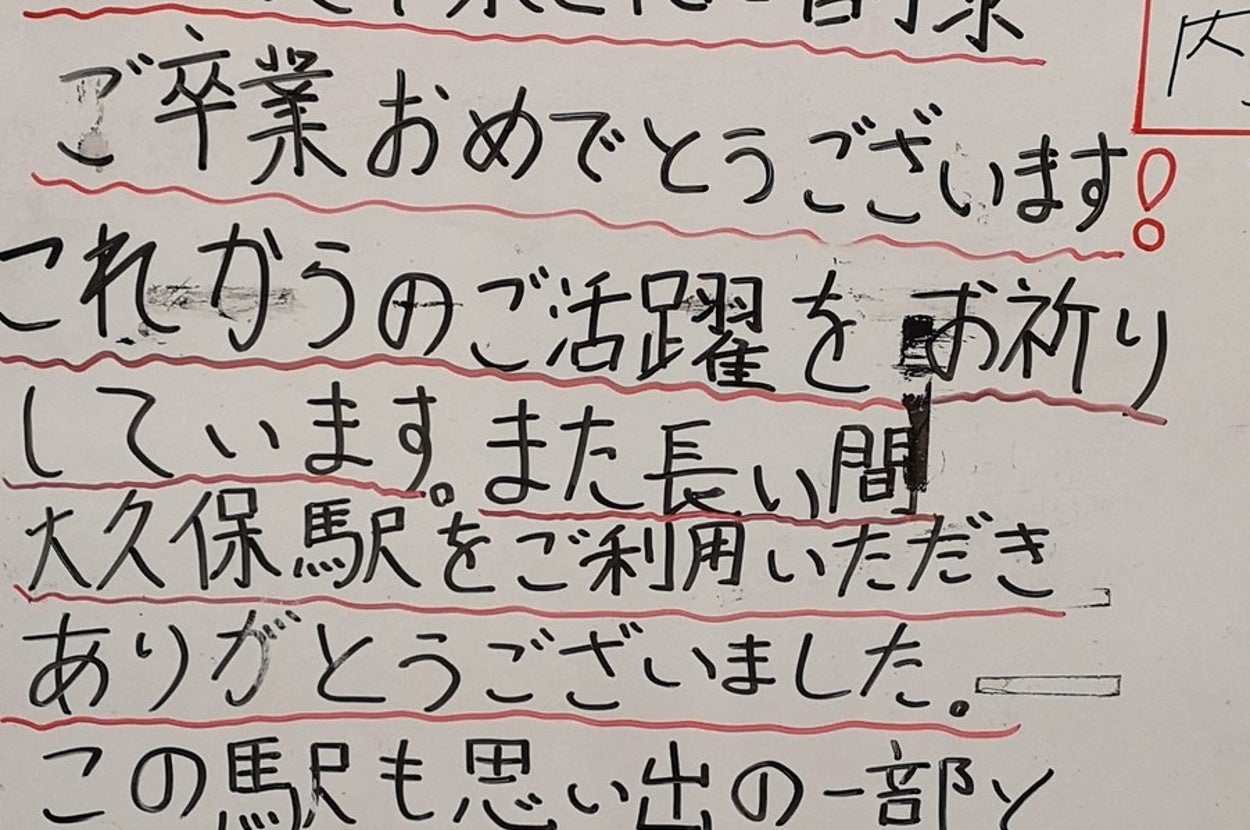 ご卒業おめでとうございます!
これからのご活躍をお祈り
しています。また長い間
大久保駅をご利用いただき
ありがとうございました。
この駅も思い出の一部と
内